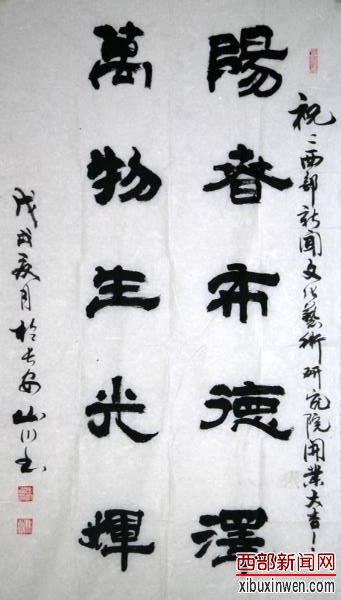 祝:西部新聞文化藝術研究院開業大吉!
陽春布德澤
萬物生光輝
戊戌夏月於长安山川书
西部新闻网
xibuxinwen.com